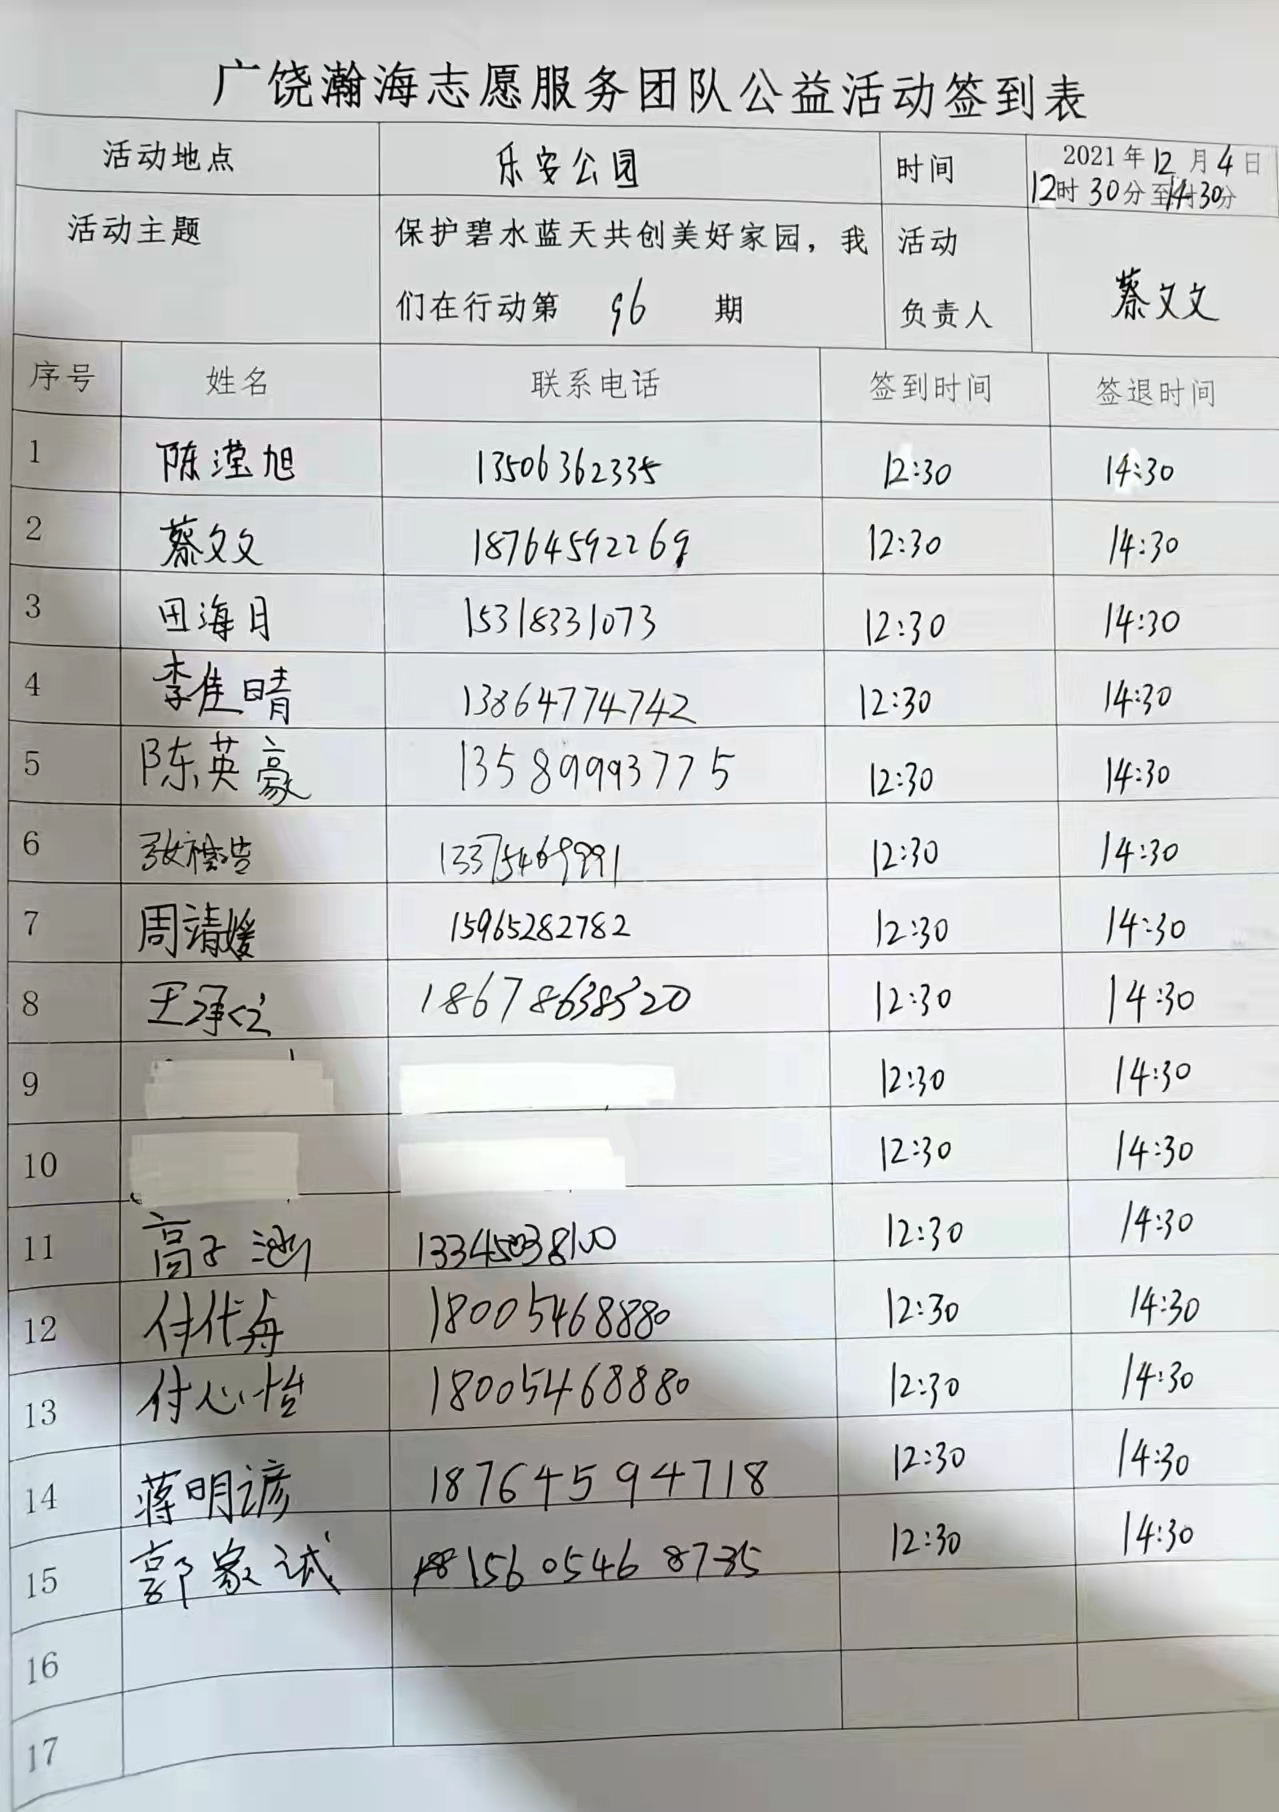 广饶瀚海志愿服务团队公益活动签到表
活动地点 乐安公园 时间 2021年12月4日
12时30分至14时30分
活动主题 保护碧水蓝天共创美好家园，我 活动
们在行动第 96 期 负责人 蔡文文
序号 姓名 联系电话 签到时间 签退时间
1 陈滢旭 13506362335 12:30 14:30
2 蔡文文 18764592269 12:30 14:30
3 田海月 15318331073 12:30 14:30
4 李佳晴 13864774742 12:30 14:30
5 陈英豪 13589993775 12:30 14:30
6 13375469991 12:30 14:30
7 周靖媛 15965282782 12:30 14:30
8 18678638520 12:30 14:30
9 12:30 14:30
10 12:30 14:30
11 高子涵 12:30 14:30
12 付代舟 18005468880 12:30 14:30
13 付心怡 18005468880 12:30 14:30
14 蒋明谚 18764594718 12:30 14:30
15 郭家试 15605468735 12:30 14:30
16
17